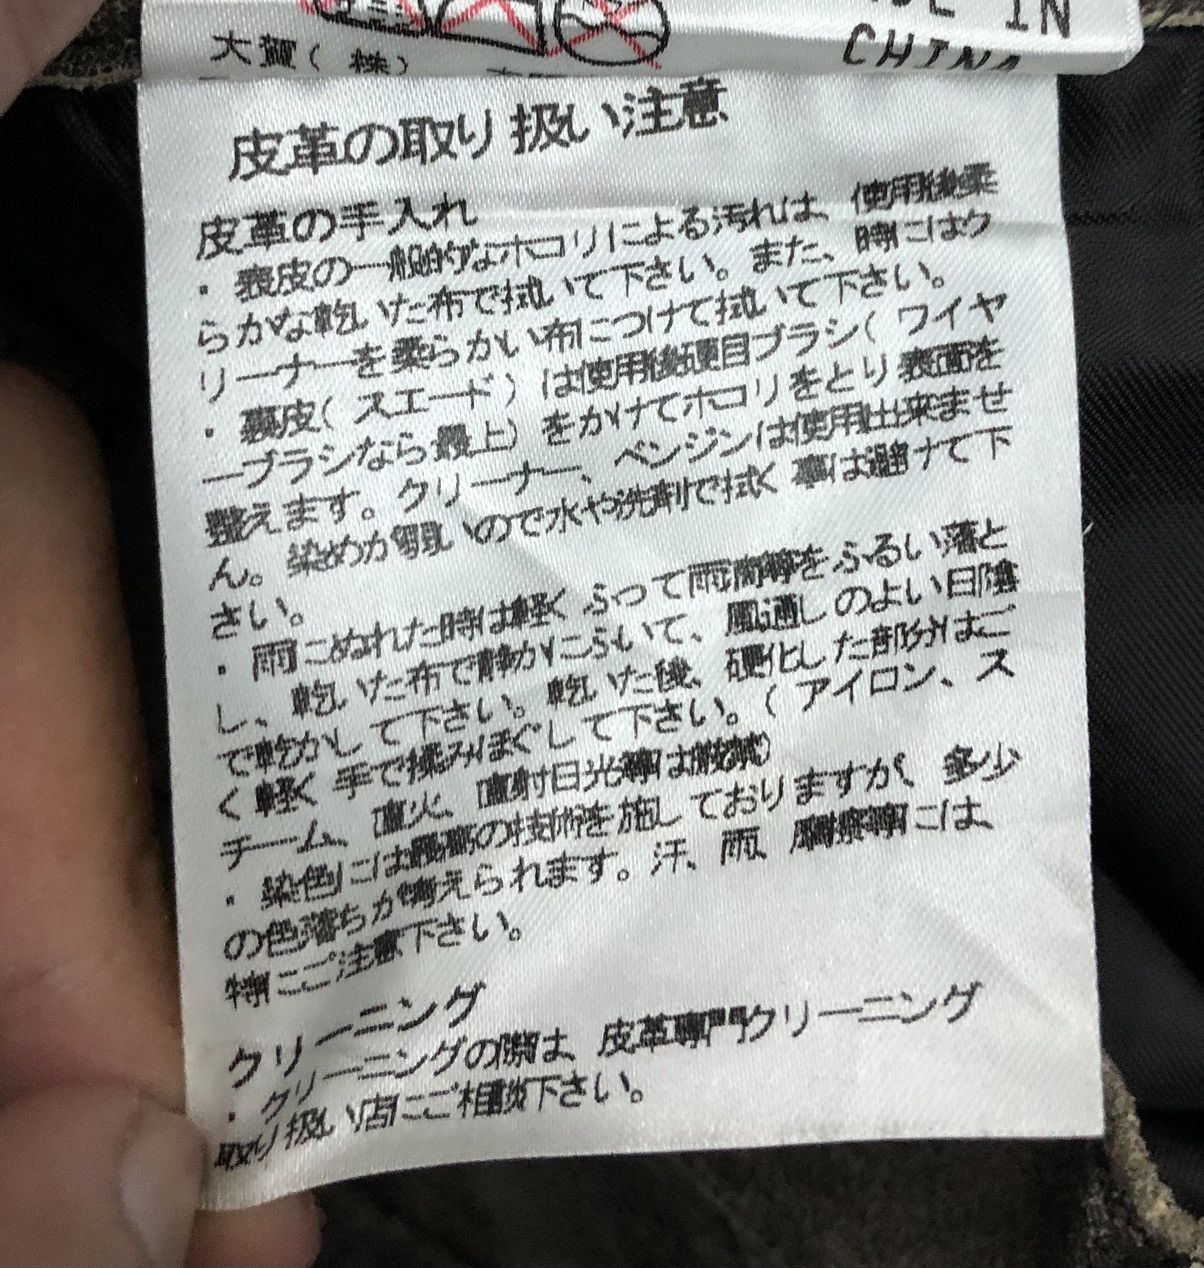 IN
大賀(株)
CHINA
皮革の取り扱い注意
皮革の手入れ
・表皮の一般的なホコリによる汚れは、使用後柔
らかな乾いた布で拭いて下さい。また、時にはク
リーナーを柔らかい布につけて拭いて下さい。
・裏皮(スエード)は使用後硬目ブラシ(ワイヤ
ーブラシなら最上)をかけてホコリをとり表面を
整えます。クリーナー、ベンジンは使用出来ませ
ん。染めが弱いので水や洗剤で拭く事は避けて下
さい。
・雨にぬれた時は軽くふって雨滴等をふるい落と
し、乾いた布で静かにふいて、風通しのよい日陰
で乾かして下さい。乾いた後、硬化した部分はご
く軽く手で揉みほぐして下さい。(アイロン、ス
チーム、直火、直射日光等は厳禁)
・染色には最高の技術を施しておりますが、多少
の色落ちが考えられます。汗、雨、摩擦等には、
特にご注意下さい。
クリーニング
・クリーニングの際は、皮革専門クリーニング
取り扱い店にご相談下さい。